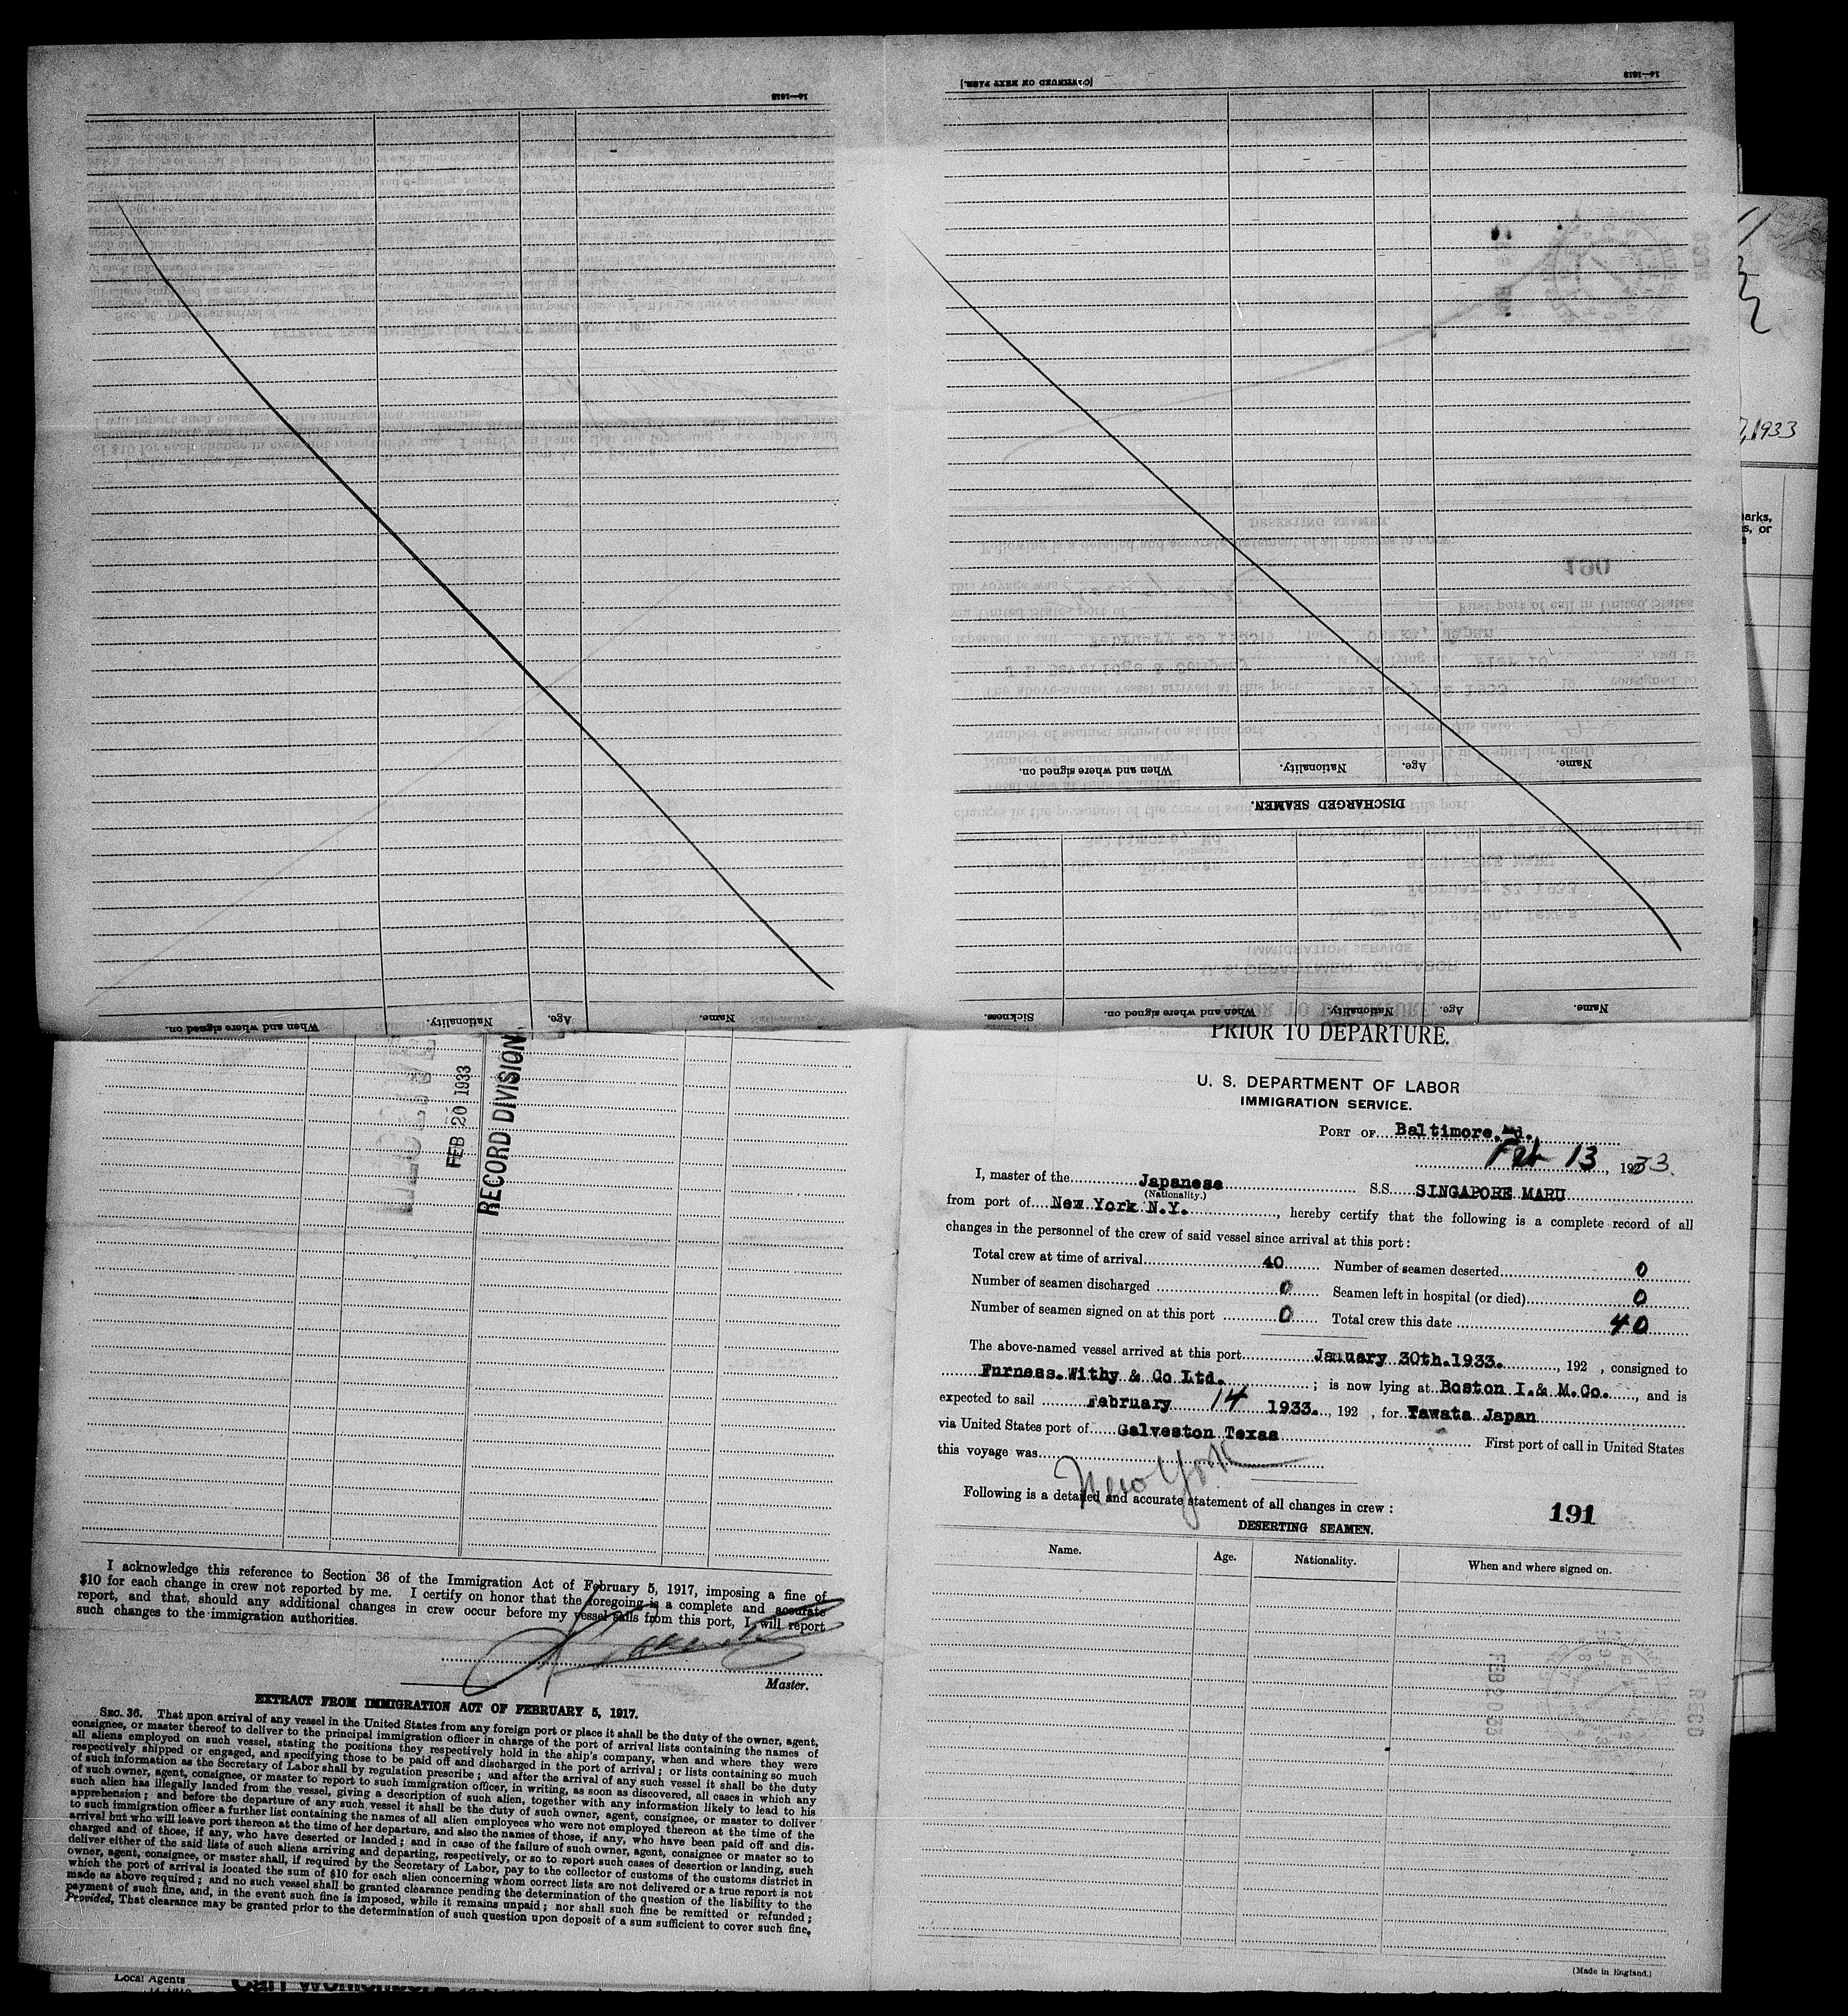 16—1618
[CONTINUED ON NEXT PAGE.]
16—1618
Name. Age. Nationality. When and where signed on.
DISCHARGED SEAMEN.
Name. Age. Nationality. When and where signed on. Sickness
Name. Age. Nationality. When and where signed on.
1933
FEB 20 1933
RECORD DIVISION
PRIOR TO DEPARTURE.
U. S. DEPARTMENT OF LABOR
IMMIGRATION SERVICE.
PORT OF Baltimore, Md.
Feb 13, 1933.
I, master of the Japanese S.S. SINGAPORE MARU
(Nationality.)
from port of New York N.Y., hereby certify that the following is a complete record of all
changes in the personnel of the crew of said vessel since arrival at this port:
Total crew at time of arrival 40 Number of seamen deserted 0
Number of seamen discharged 0 Seamen left in hospital (or died) 0
Number of seamen signed on at this port 0 Total crew this date 40
The above-named vessel arrived at this port January 30th.1933., 192 , consigned to
Furness.Withy & Co Ltd. ; is now lying at Boston I.& M.Co., and is
expected to sail February 14 1933., 192 , for Yawata Japan
via United States port of Galveston Texas First port of call in United States
this voyage was New York
Following is a detailed and accurate statement of all changes in crew:
191
DESERTING SEAMEN.
Name. Age. Nationality. When and where signed on.
FEB 20 33
RECD
(Made in England.)
I acknowledge this reference to Section 36 of the Immigration Act of February 5, 1917, imposing a fine of
$10 for each change in crew not reported by me. I certify on honor that the foregoing is a complete and accurate
report, and that, should any additional changes in crew occur before my vessel sails from this port, I will report
such changes to the immigration authorities.
Master.
EXTRACT FROM IMMIGRATION ACT OF FEBRUARY 5, 1917.
SEC. 36. That upon arrival of any vessel in the United States from any foreign port or place it shall be the duty of the owner, agent,
consignee, or master thereof to deliver to the principal immigration officer in charge of the port of arrival lists containing the names of
all aliens employed on such vessel, stating the positions they respectively hold in the ship's company, when and where they were
respectively shipped or engaged, and specifying those to be paid off and discharged in the port of arrival; or lists containing so much
of such information as the Secretary of Labor shall by regulation prescribe; and after the arrival of any such vessel it shall be the duty
of such owner, agent, consignee, or master to report to such immigration officer, in writing, as soon as discovered, all cases in which any
such alien has illegally landed from the vessel, giving a description of such alien, together with any information likely to lead to his
apprehension; and before the departure of any such vessel it shall be the duty of such owner, agent, consignee, or master to deliver
to such immigration officer a further list containing the names of all alien employees who were not employed thereon at the time of the
arrival but who will leave port thereon at the time of her departure, and also the names of those, if any, who have been paid off and dis-
charged and of those, if any, who have deserted or landed; and in case of the failure of such owner, agent, consignee or master so to
deliver either of the said lists of such aliens arriving and departing, respectively, or so to report such cases of desertion or landing, such
owner, agent, consignee, or master shall, if required by the Secretary of Labor, pay to the collector of customs of the customs district in
which the port of arrival is located the sum of $10 for each alien concerning whom correct lists are not delivered or a true report is not
made as above required; and no such vessel shall be granted clearance pending the determination of the question of the liability to the
payment of such fine, and, in the event such fine is imposed, while it remains unpaid; nor shall such fine be remitted or refunded;
Provided, That clearance may be granted prior to the determination of such question upon deposit of a sum sufficient to cover such fine.
Local Agents